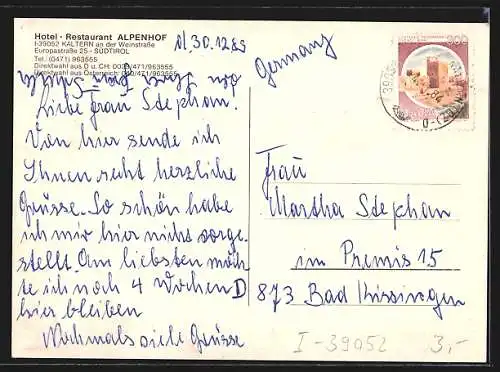 Hotel - Restaurant ALPENHOF
I-39052 KALTERN an der Weinstraße
Europastraße 25 - SÜDTIROL
Tel. (0471) 963555
Direktwahl aus D u. CH: 0039/471/963555
Direktwahl aus Österreich: 040/471/963555
Liebe Frau Stephan.
Von hier sende ich
Ihnen recht herzliche
Grüsse. So schön habe
ich mir hier nicht vorge-
stellt. Am liebsten möch-
te ich noch 4 Wochen
hier bleiben
Nochmals viele Grüsse
Germany
Frau
Martha Stephan
im Premis 15
873 Bad Kissingen
I-39052 3,-